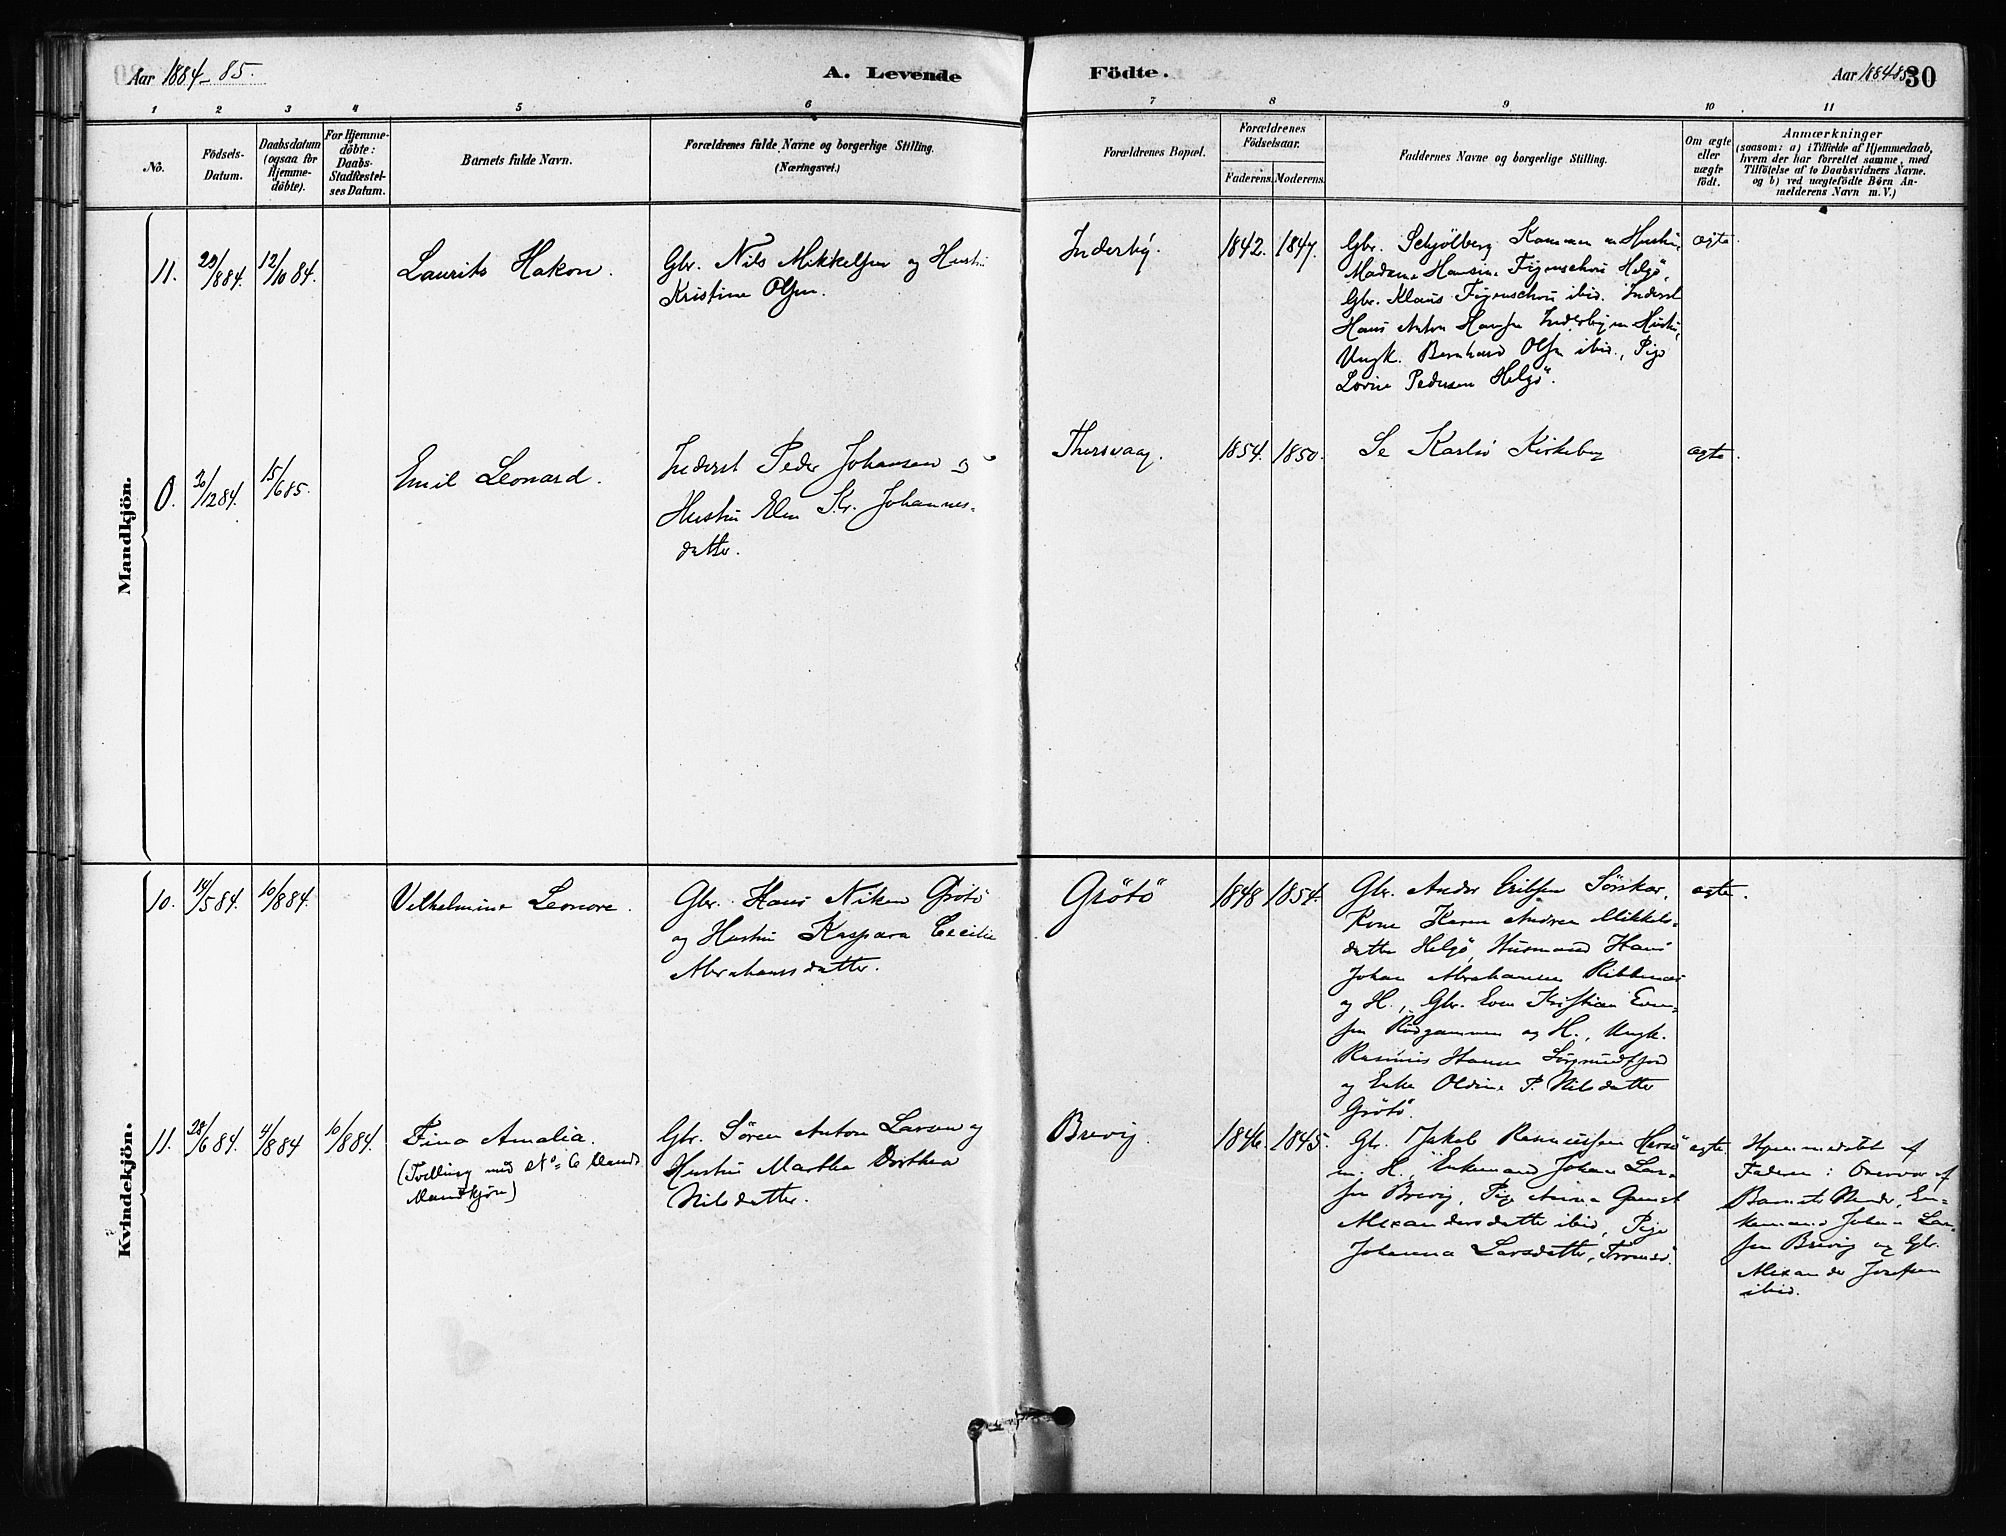 Aar 1884-85.
A. Levende
Födte.
Aar 1884-85
30
1 2 3 4 5 6 7 8 9 10 11
No.
Födsels-
Datum.
Daabsdatum
(ogsaa for
Hjemme-
döbte).
For Hjemme-
döbte:
Daabs-
Stadfæstel-
ses Datum.
Barnets fulde Navn.
Forældrenes fulde Navne og borgerlige Stilling.
(Næringsvei.)
Forældrenes Bopæl.
Forældrenes
Födselsaar.
Faderens. Moderens.
Faddernes Navne og borgerlige Stilling.
Om ægte
eller
uægte
födt.
Anmærkninger
(saasom: a) i Tilfælde af Hjemmedaab,
hvem der har forrettet samme, med
Tilföielse af to Daabsvidners Navne.
og b) ved uægtefödte Börn An-
melderens Navn m. V.)
Mandkjön.
11.
/884.
12/1084.
Laurits Hakon.
Gbr. Nils Mikkelsen og Hustru
Kristine Olsen.
Inderby.
1842. 1847.
Gbr. Schjölberg Kammen m Hustru,
Madame Hansine Figenschou Helgö,
Gbr. Klaus Figenschou ibid. Inderst
Hans Anton Hansen Inderby m Hustru,
Ungk. Bernhard Olsen ibid., Pige
Lovise Pedersen Helgö.
ægte.
0.
30/1284.
15/685.
Emil Leonard.
Inderst Peder Johansen og
Hustru Elen Kr. Johannes-
datter.
Thorsvaag.
1854. 1850.
Se Karlsö Kirkebog
ægte.
Kvindekjön.
10.
14/584.
10/884.
Vilhelmine Leonore.
Gbr. Hans Niken Grötö
og Hustru Kaspara Cecilie
Abrahamsdatter.
Grötö
1848 1854.
Gbr. Andr Erilsen Sörskar,
Kone Karen Andrea Mikkels-
datter Helgö, Husmand Hans
Johan Abrahamsen
og H., Gbr. Even Kristian Even-
sen Rödgammen og H., Ungk.
Rasmus Hansen
og Enke Oldine P. Nilsdatter
Grötö.
ægte.
11.
28/684.
4/884
10/884.
Fina Amalia.
(Tvilling med No= 6
Mandkjön)
Gbr. Sören Anton Larsen og
Hustru Martha Dorthea
Nilsdatter.
Brevig.
1846. 1845.
Gbr. Jakob Rasmussen
m. H., Enkemand Johan Lar-
sen Brevig, Pige Anna
Alexandersdatter ibid, Pige
Johanna Larsdatter, Tromsö.
ægte.
Hjemmedöbt af
Faderen: Overvær af
Barnets Moder, En-
kemand Johan Lar-
sen Brevig og Gbr.
Alexander Josefsen
ibid.